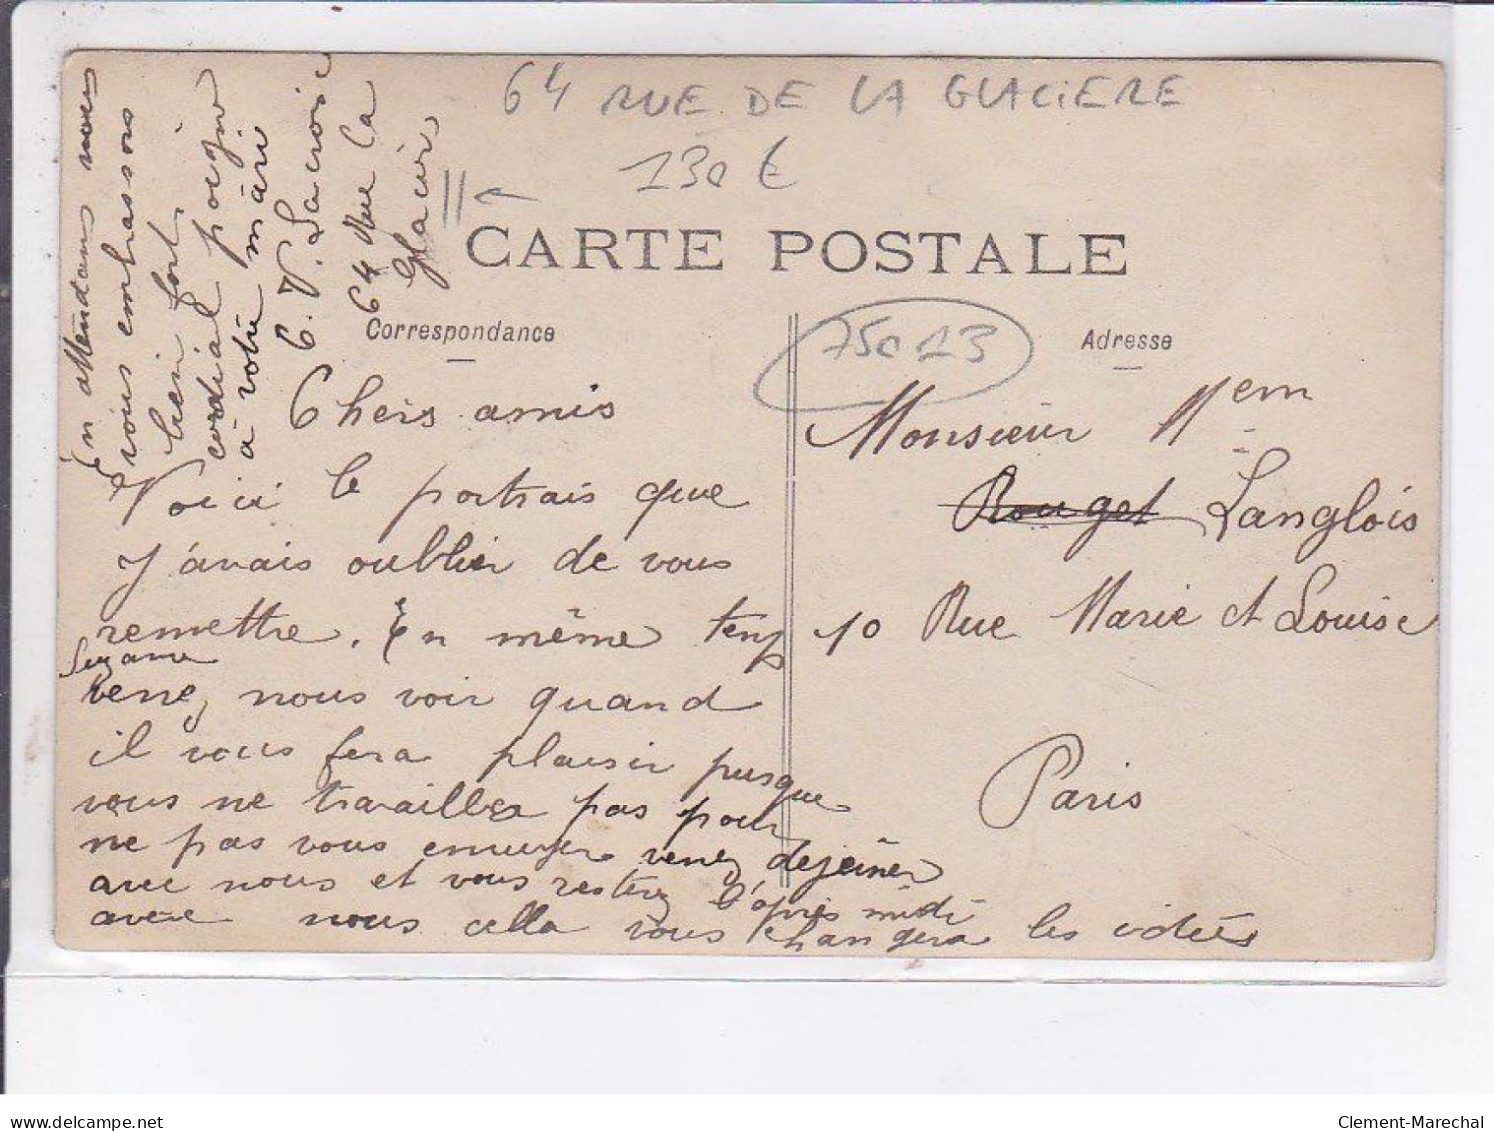 64 RUE DE LA GLACIERE
130 €
CARTE POSTALE
Correspondance
75013
Adresse
En attendans nous
vous embrassons
bien fort
cordial
à votre mari
64 Rue la
Glacier
Chers amis
Voici le portrais que
j'avais oublier de vous
remettre. En même temp
Suzanne
venez nous voir quand
il vous fera plaisir pusque
vous ne travaillez pas pour
ne pas vous ennuyer venez dejeûner
avec nous et vous restere l'après midi
avec nous cella vous changera les idées
Monsieur Mem
Rouget Langlois
10 Rue Marie et Louise
Paris
delcampe.net
Clement-Marechal